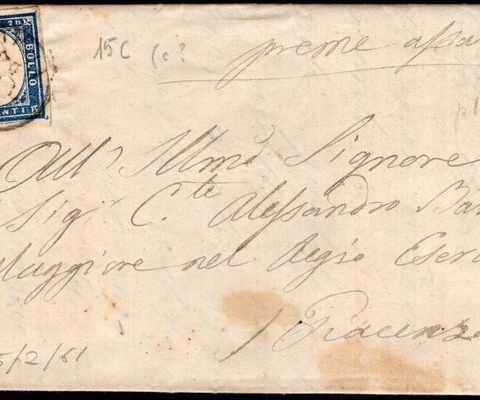 20
BOLLO
15C (c?
preme assa
All' Illmo Signore
Sig. C.te Alessandro Ba
Maggiore nel Regio Eser
Piacenza
5/2/61